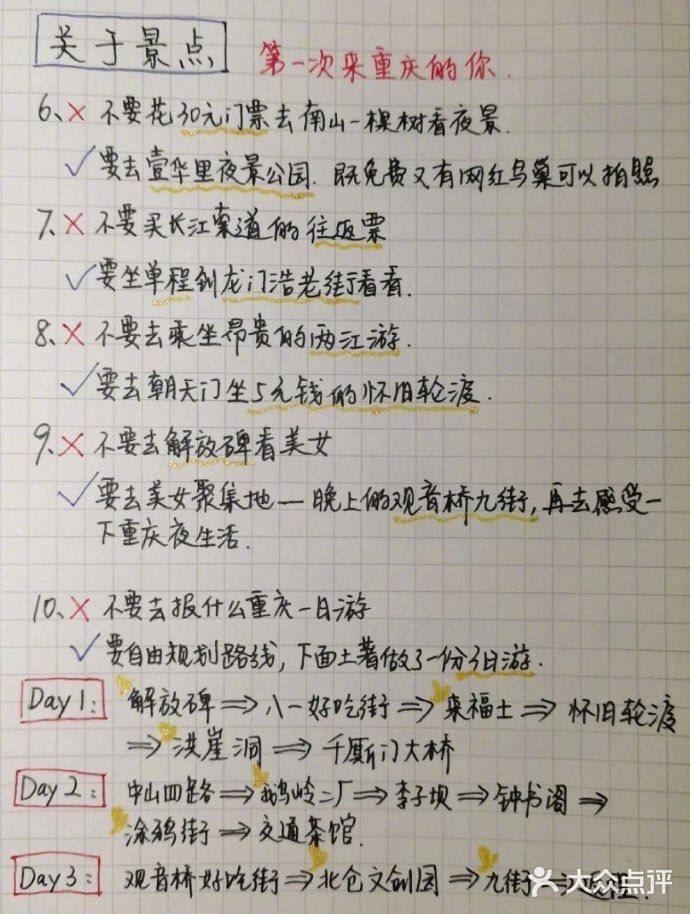 关于景点
第一次来重庆的你.
6、× 不要花30元门票去南山一棵树看夜景.
✓要去壹华里夜景公园.既免费又有网红鸟巢可以拍照
7、× 不要买长江索道的往返票
✓要坐单程到龙门浩老街看看.
8、× 不要去乘坐昂贵的两江游.
✓要去朝天门坐5元钱的怀旧轮渡.
9、× 不要去解放碑看美女
✓要去美女聚集地—晚上的观音桥九街,再去感受一
下重庆夜生活.
10、× 不要去报什么重庆一日游
✓要自由规划路线,下面土著做了一份3日游.
Day1: 解放碑⇒八一好吃街⇒来福士⇒怀旧轮渡
⇒洪崖洞⇒千厮门大桥
Day2: 中山四路⇒鹅岭二厂⇒李子坝⇒钟书阁⇒
涂鸦街⇒交通茶馆.
Day3: 观音桥好吃街⇒北仓文创园⇒九街⇒
大众点评